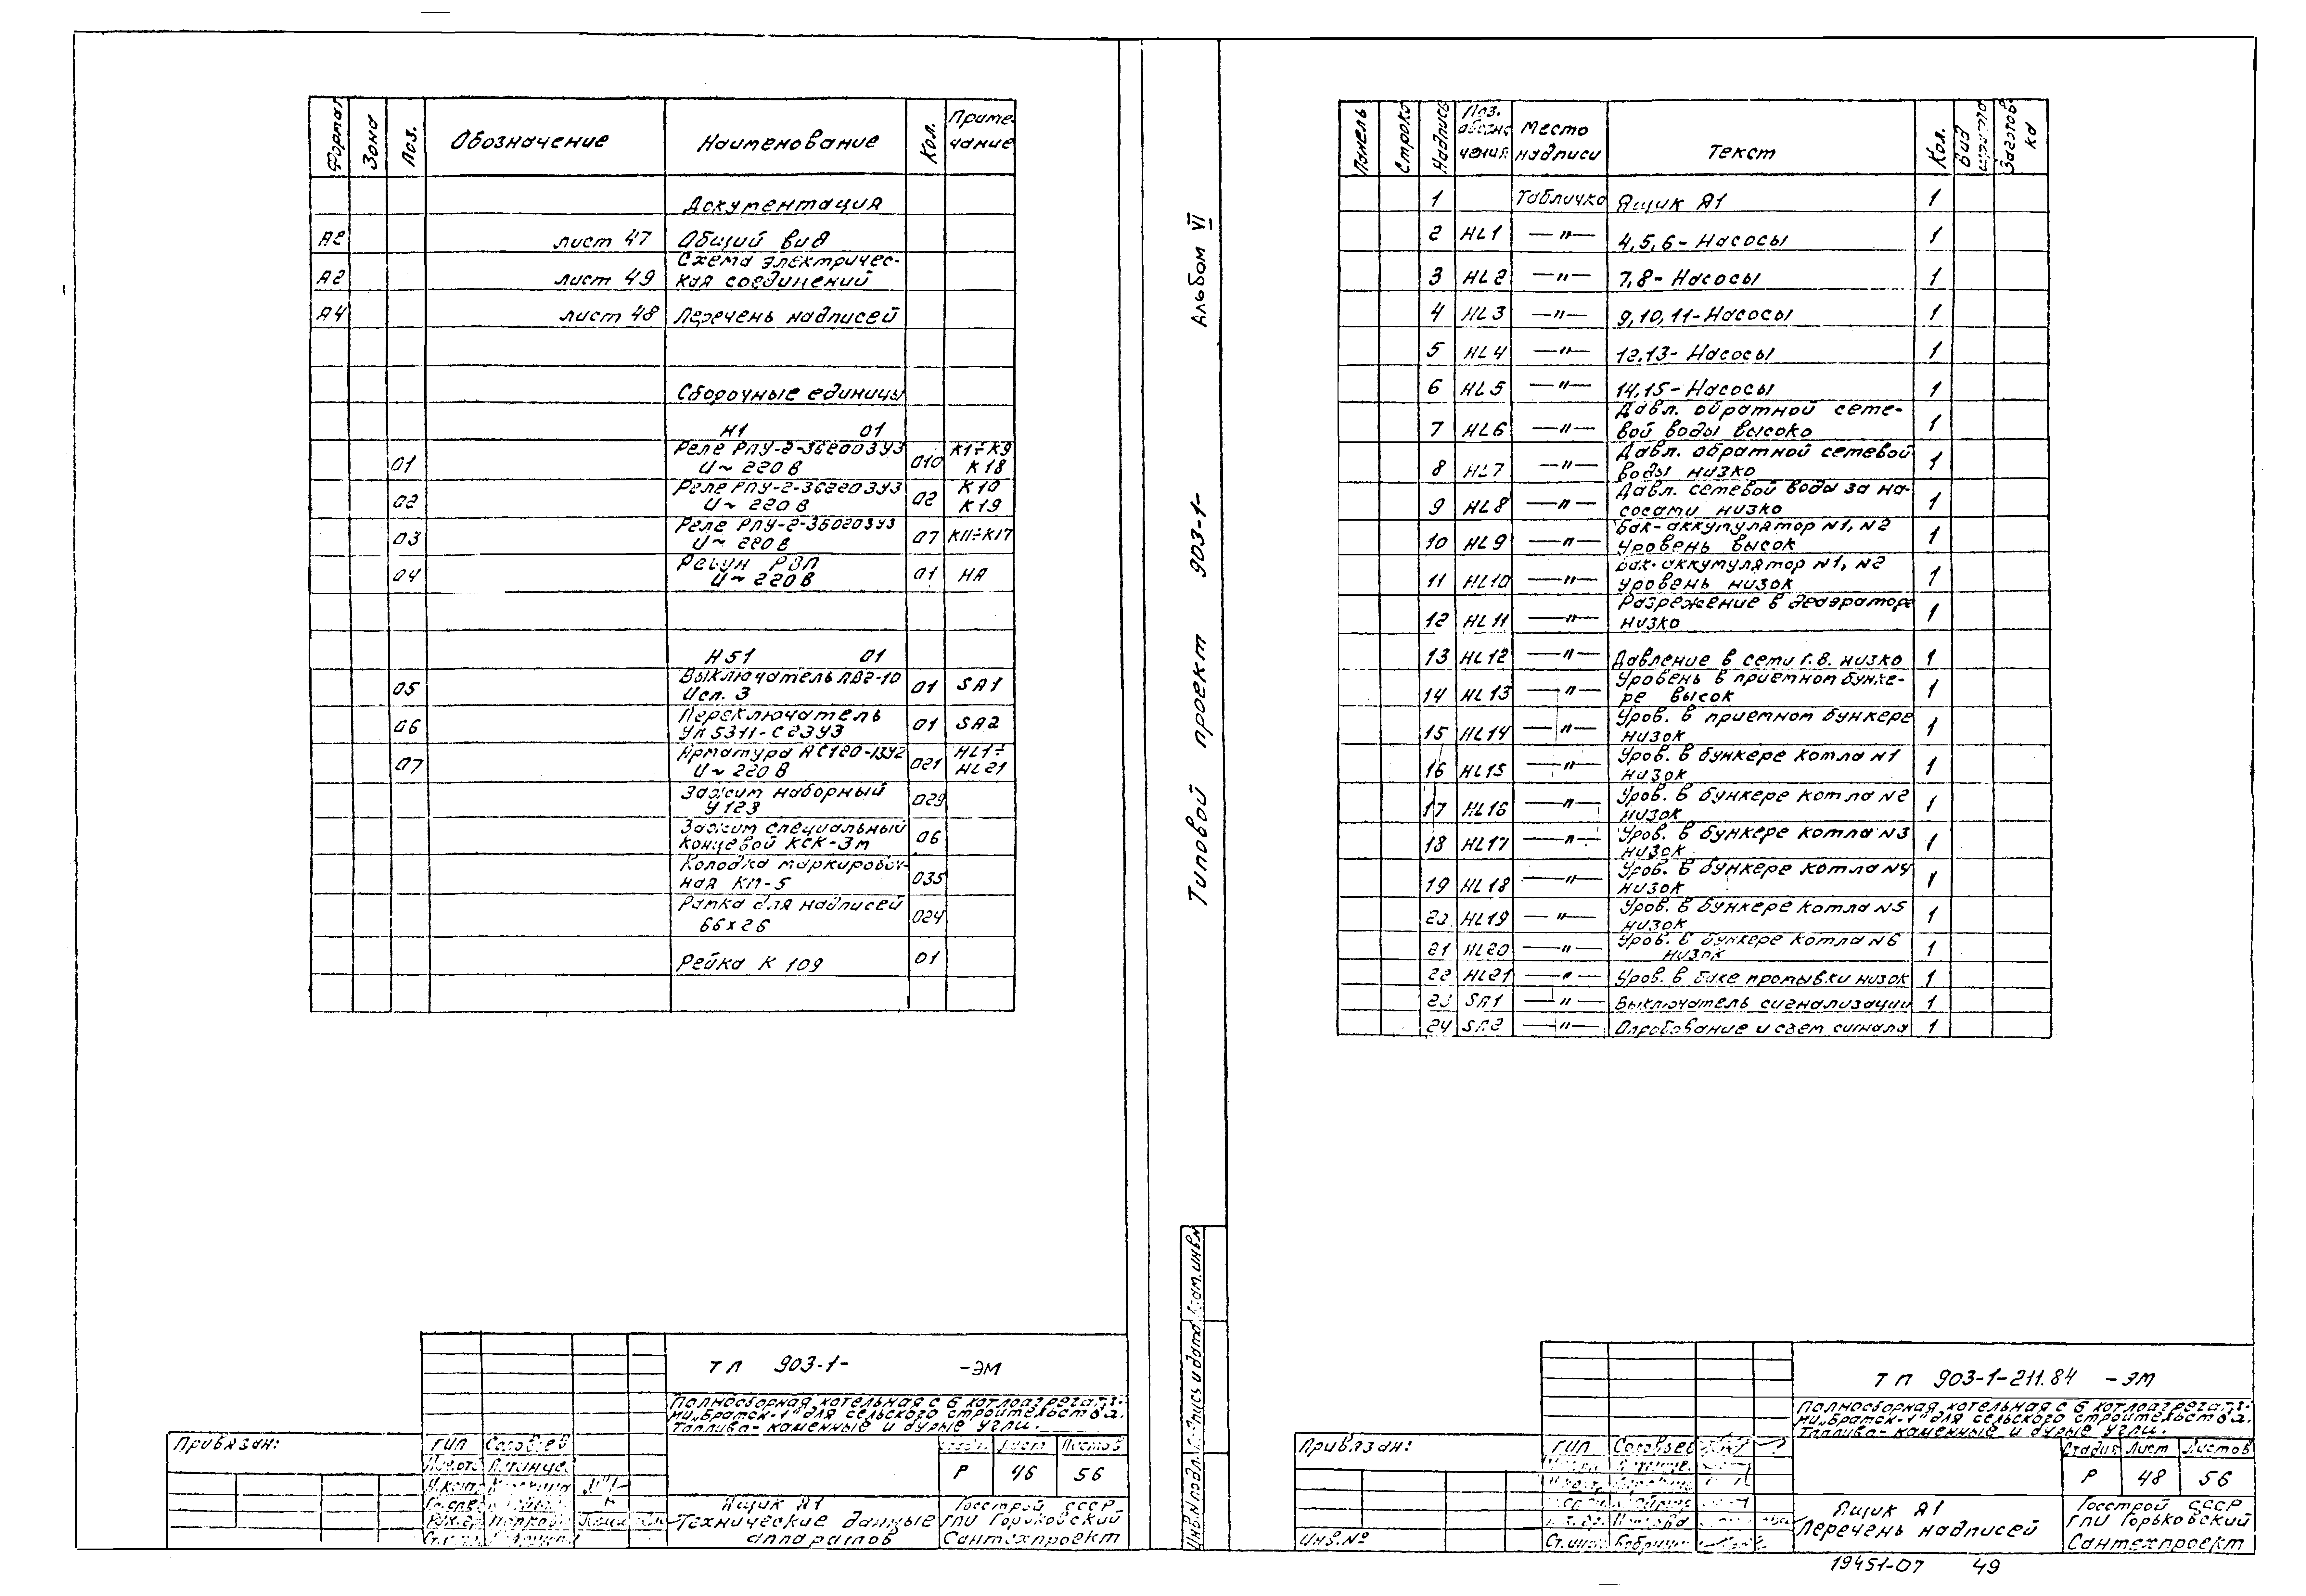 Формат Зона Поз. Обозначение Наименование Кол. Приме-
чание
Документация
А2 лист 47 Общий вид
Схема электричес-
А2 лист 49 кая соединений
А4 лист 48 Перечень надписей
Сборочные единицы
А1 01
01 Реле РПУ-2-362003У3 010 К1÷К9
U~220В К18
02 Реле РПУ-2-362203У3 02 К10
U~220В К19
03 Реле РПУ-2-360203У3 07 К11÷К17
U~220В
04 Ревун РВП 01 НА
U~220В
А51 01
05 Выключатель ПВ2-10 01 SA1
Исп. 3
06 Переключатель 01 SA2
УП5311-С23У3
07 Арматура АС120-13У2 021 HL1÷
U~220В HL21
Зажим наборный 029
У123
Зажим специальный 06
концевой КСК-3м
Колодка маркировоч-
ная КМ-5 035
Рамка для надписей 024
66х26
Рейка К 109 01
ТП 903-1- -ЭМ
Полносборная котельная с 6 котлоагрегата-
ми „Братск-1" для сельского строительства.
Топливо- каменные и бурые угли.
Привязан:
ГИП Соловьев
Лист Листов
Р 46 56
Ящик А1
Технические данные
аппаратов
Госстрой СССР
ГПИ Горьковский
Сантехпроект
Альбом VI
Типовой проект 903-1-
Инв.№подл. Подпись и дата Взам.инв.№
Панель Строка Надпись Поз. обозна чения Место надписи Текст Кол. Вид шрифта Заготов ка
1 Табличка Ящик А1 1
2 HL1 —"— 4,5,6- Насосы 1
3 HL2 —"— 7,8- Насосы 1
4 HL3 —"— 9,10,11-Насосы 1
5 HL4 —"— 12,13- Насосы 1
6 HL5 —"— 14,15- Насосы 1
Давл. обратной сете-
7 HL6 —"— вой воды высоко 1
Давл. обратной сетевой
8 HL7 —"— воды низко 1
Давл. сетевой воды за на-
9 HL8 —"— сосами низко 1
Бак-аккумулятор N1, N2
10 HL9 —"— уровень высок 1
Бак-аккумулятор N1, N2
11 HL10 —"— уровень низок 1
Разрежение в деаэраторе
12 HL11 —"— низко 1
13 HL12 —"— Давление в сети г.в. низко 1
Уровень в приемном бунке-
14 HL13 —"— ре высок 1
Уров. в приемном бункере
15 HL14 —"— низок 1
Уров. в бункере котла N1
16 HL15 —"— низок 1
Уров. в бункере котла N2
17 HL16 —"— низок 1
Уров. в бункере котла N3
18 HL17 —"— низок 1
Уров. в бункере котла N4
19 HL18 —"— низок 1
Уров. в бункере котла N5
20 HL19 —"— низок 1
Уров. в бункере котла N6
21 HL20 —"— низок 1
22 HL21 —"— Уров. в баке промывки низок 1
23 SA1 —"— Выключатель сигнализации 1
24 SA2 —"— Опробование и съем сигнала 1
ТП 903-1-211.84 -ЭМ
Полносборная котельная с 6 котлоагрегата-
ми „Братск-1" для сельского строительства.
Топливо- каменные и бурые угли.
Привязан:
Инв.№
ГИП Соловьев
Стадия Лист Листов
Р 48 56
Ящик А1
Перечень надписей
Госстрой СССР
ГПИ Горьковский
Сантехпроект
19451-07 49